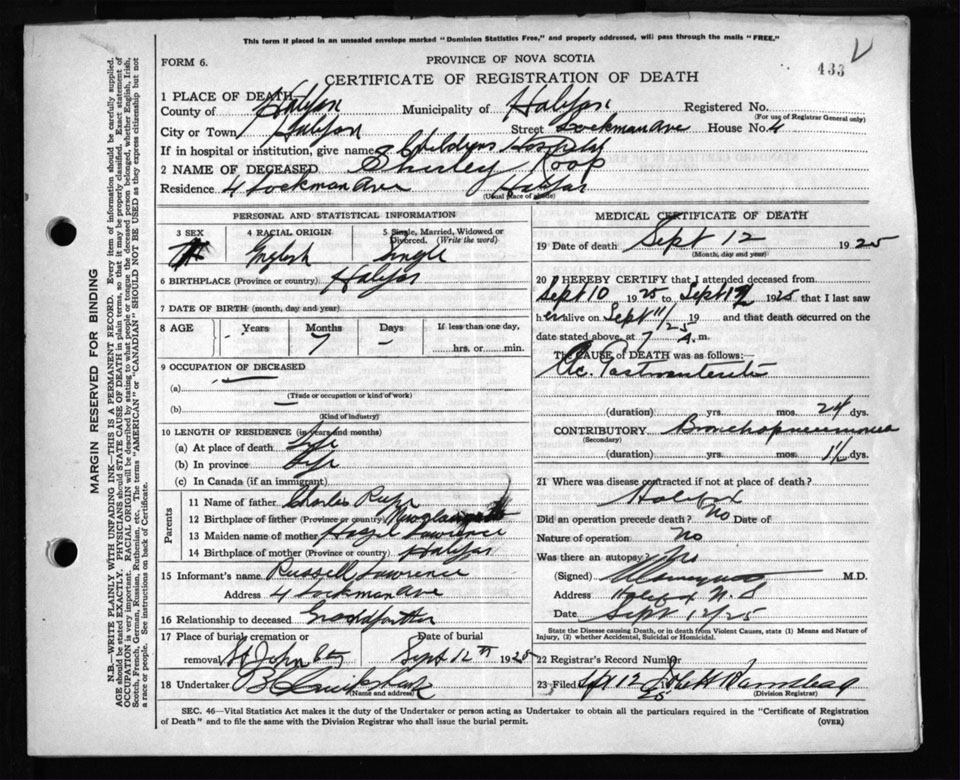 This form if placed in an unsealed envelope marked "Dominion Statistics Free," and properly addressed, will pass through the mails "FREE."
FORM 6.
PROVINCE OF NOVA SCOTIA
433
CERTIFICATE OF REGISTRATION OF DEATH
1 PLACE OF DEATH
County of Halifax Municipality of Halifax Registered No.
(For use of Registrar General only)
City or Town Halifax Street Lockman Ave House No. 4
If in hospital or institution, give name Childrens Hospital
2 NAME OF DECEASED Shirley Roop
Residence 4 Lockman Ave Halifax
(Usual place of abode)
PERSONAL AND STATISTICAL INFORMATION
3 SEX 4 RACIAL ORIGIN 5 Single, Married, Widowed or Divorced. (Write the word)
English Single
6 BIRTHPLACE (Province or country) Halifax
7 DATE OF BIRTH (month, day and year)
8 AGE Years Months Days If less than one day,
- 7 - hrs. or min.
9 OCCUPATION OF DECEASED
(a)
(Trade or occupation or kind of work)
(b)
(Kind of industry)
10 LENGTH OF RESIDENCE (in years and months)
(a) At place of death Life
(b) In province Life
(c) In Canada (if an immigrant)
Parents
11 Name of father Charles
12 Birthplace of father (Province or country)
13 Maiden name of mother Hazel Lawrence
14 Birthplace of mother (Province or country) Halifax
15 Informant's name Russell Lawrence
Address 4 Lockman Ave
16 Relationship to deceased Grandfather
17 Place of burial, cremation or Date of burial
removal St John Sept 12th 1925
18 Undertaker
(Name and address)
MEDICAL CERTIFICATE OF DEATH
19 Date of death Sept 12 1925
(Month, day and year)
20 I HEREBY CERTIFY that I attended deceased from
Sept 10 1925 to Sept 12 1925 that I last saw
her alive on Sept 11/25 19 and that death occurred on
date stated above, at 7 a.m.
The CAUSE of DEATH was as follows:
Ac. Gastroenteritis
(duration) yrs. mos. 24 dys.
CONTRIBUTORY Bronchopneumonia
(Secondary)
(duration) yrs. mos. 1½ dys.
21 Where was disease contracted if not at place of death?
Halifax
Did an operation precede death? No Date of
Nature of operation No
Was there an autopsy?
(Signed) M.D.
Address Halifax N.S
Date Sept 12/25
State the Disease causing Death, or in death from Violent Causes, state (1) Means and Nature of Injury, (2) whether Accidental, Suicidal or Homicidal.
22 Registrar's Record Number
23 Filed Sept 12
(Division Registrar)
SEC. 46—Vital Statistics Act makes it the duty of the Undertaker or person acting as Undertaker to obtain all the particulars required in the "Certificate of Registration
of Death" and to file the same with the Division Registrar who shall issue the burial permit.
(OVER)
MARGIN RESERVED FOR BINDING
N.B.—WRITE PLAINLY WITH UNFADING INK—THIS IS A PERMANENT RECORD. Every item of information should be carefully supplied.
AGE should be stated EXACTLY. PHYSICIANS should STATE CAUSE OF DEATH in plain terms, so that it may be properly classified. Exact statement of
OCCUPATION is very important. RACIAL ORIGIN will be described by stating to what people or tongue the deceased person belonged, whether English, Irish,
Scotch, French, German, Russian, Ruthenian, etc. The terms "AMERICAN" or "CANADIAN" SHOULD NOT BE USED as they express citizenship but not
a race or people. See instructions on back of Certificate.